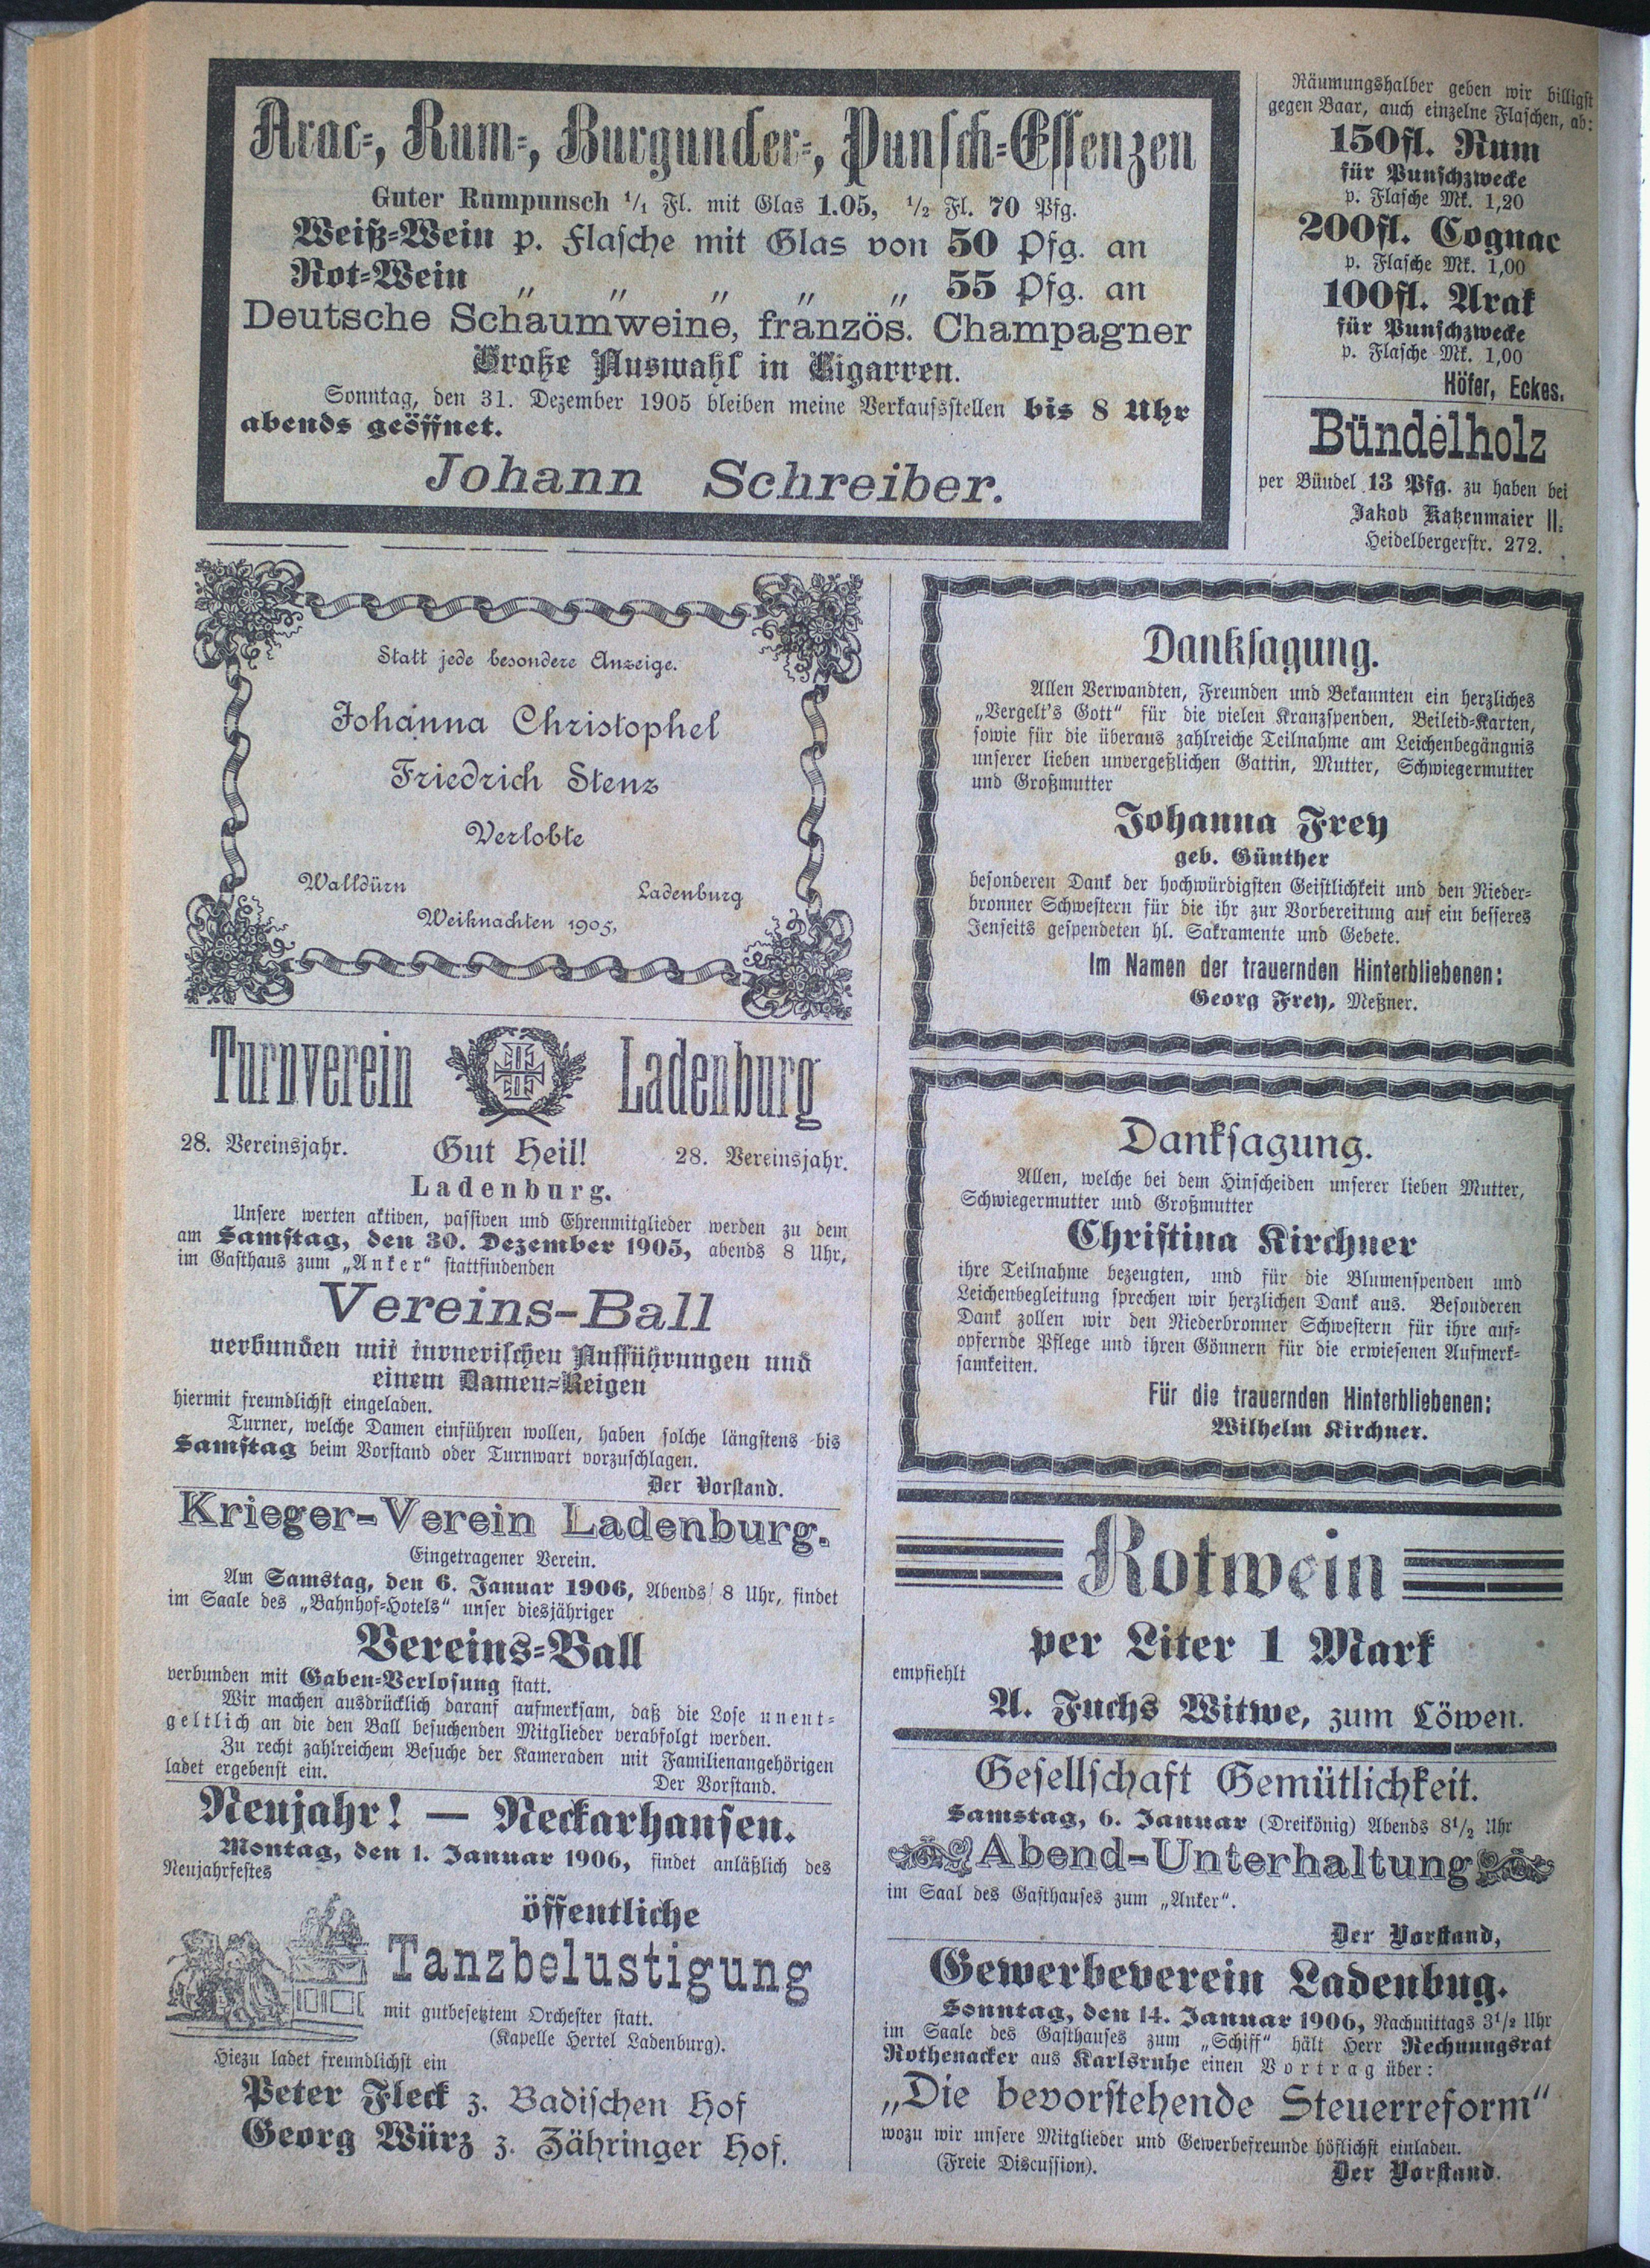 Arac-, Rum-, Burgunder-, Punsch-Essenzen
Guter Rumpunsch 1/1 Fl. mit Glas 1.05, 1/2 Fl. 70 Pfg.
Weiß-Wein p. Flasche mit Glas von 50 Pfg. an
Rot-Wein „ „ „ „ „ 55 Pfg. an
Deutsche Schaumweine, französ. Champagner
Große Auswahl in Cigarren.
Sonntag, den 31. Dezember 1905 bleiben meine Verkaufsstellen bis 8 Uhr
abends geöffnet.
Johann Schreiber.
Räumungshalber geben wir billigst
gegen Baar, auch einzelne Flaschen, ab:
150fl. Rum
für Punschzwecke
p. Flasche Mk. 1,20
200fl. Cognac
p. Flasche Mk. 1,00
100fl. Arak
für Punschzwecke
p. Flasche Mk. 1,00
Höfer, Eckes.
Bündelholz
per Bündel 13 Pfg. zu haben bei
Jakob Katzenmaier II.
Heidelbergerstr. 272.
Statt jede besondere Anzeige.
Johanna Christophel
Friedrich Stenz
Verlobte
Walldürn Ladenburg
Weihnachten 1905,
Turnverein Ladenburg
28. Vereinsjahr. Gut Heil! 28. Vereinsjahr.
Ladenburg.
Unsere werten aktiven, passiven und Ehrenmitglieder werden zu dem
am Samstag, den 30. Dezember 1905, abends 8 Uhr,
im Gasthaus zum „Anker“ stattfindenden
Vereins-Ball
verbunden mit turnerischen Aufführungen und
einem Damen-Reigen
hiermit freundlichst eingeladen.
Turner, welche Damen einführen wollen, haben solche längstens bis
Samstag beim Vorstand oder Turnwart vorzuschlagen.
Der Vorstand.
Krieger-Verein Ladenburg.
Eingetragener Verein.
Am Samstag, den 6. Januar 1906, Abends 8 Uhr, findet
im Saale des „Bahnhof-Hotels“ unser diesjähriger
Vereins-Ball
verbunden mit Gaben-Verlosung statt.
Wir machen ausdrücklich darauf aufmerksam, daß die Lose unent-
geltlich an die den Ball besuchenden Mitglieder verabfolgt werden.
Zu recht zahlreichem Besuche der Kameraden mit Familienangehörigen
ladet ergebenst ein.
Der Vorstand.
Neujahr! — Neckarhausen.
Montag, den 1. Januar 1906, findet anläßlich des
Neujahrfestes
öffentliche
Tanzbelustigung
mit gutbesetztem Orchester statt.
(Kapelle Hertel Ladenburg).
Hiezu ladet freundlichst ein
Peter Fleck z. Badischen Hof
Georg Würz z. Zähringer Hof.
Danksagung.
Allen Verwandten, Freunden und Bekannten ein herzliches
„Vergelt's Gott“ für die vielen Kranzspenden, Beileid-Karten,
sowie für die überaus zahlreiche Teilnahme am Leichenbegängnis
unserer lieben unvergeßlichen Gattin, Mutter, Schwiegermutter
und Großmutter
Johanna Frey
geb. Günther
besonderen Dank der hochwürdigsten Geistlichkeit und den Nieder-
bronner Schwestern für die ihr zur Vorbereitung auf ein besseres
Jenseits gespendeten hl. Sakramente und Gebete.
Im Namen der trauernden Hinterbliebenen:
Georg Frey, Meßner.
Danksagung.
Allen, welche bei dem Hinscheiden unserer lieben Mutter,
Schwiegermutter und Großmutter
Christina Kirchner
ihre Teilnahme bezeugten, und für die Blumenspenden und
Leichenbegleitung sprechen wir herzlichen Dank aus. Besonderen
Dank zollen wir den Niederbronner Schwestern für ihre auf-
opfernde Pflege und ihren Gönnern für die erwiesenen Aufmerk-
samkeiten.
Für die trauernden Hinterbliebenen:
Wilhelm Kirchner.
Rotwein
per Liter 1 Mark
empfiehlt
A. Fuchs Witwe, zum Löwen.
Gesellschaft Gemütlichkeit.
Samstag, 6. Januar (Dreikönig) Abends 8 1/2 Uhr
Abend-Unterhaltung
im Saal des Gasthauses zum „Anker“.
Der Vorstand,
Gewerbeverein Ladenbug.
Sonntag, den 14. Januar 1906, Nachmittags 3 1/2 Uhr
im Saale des Gasthauses zum „Schiff“ hält Herr Rechnungsrat
Rothenacker aus Karlsruhe einen Vortrag über:
„Die bevorstehende Steuerreform“
wozu wir unsere Mitglieder und Gewerbefreunde höflichst einladen.
(Freie Discussion).
Der Vorstand.